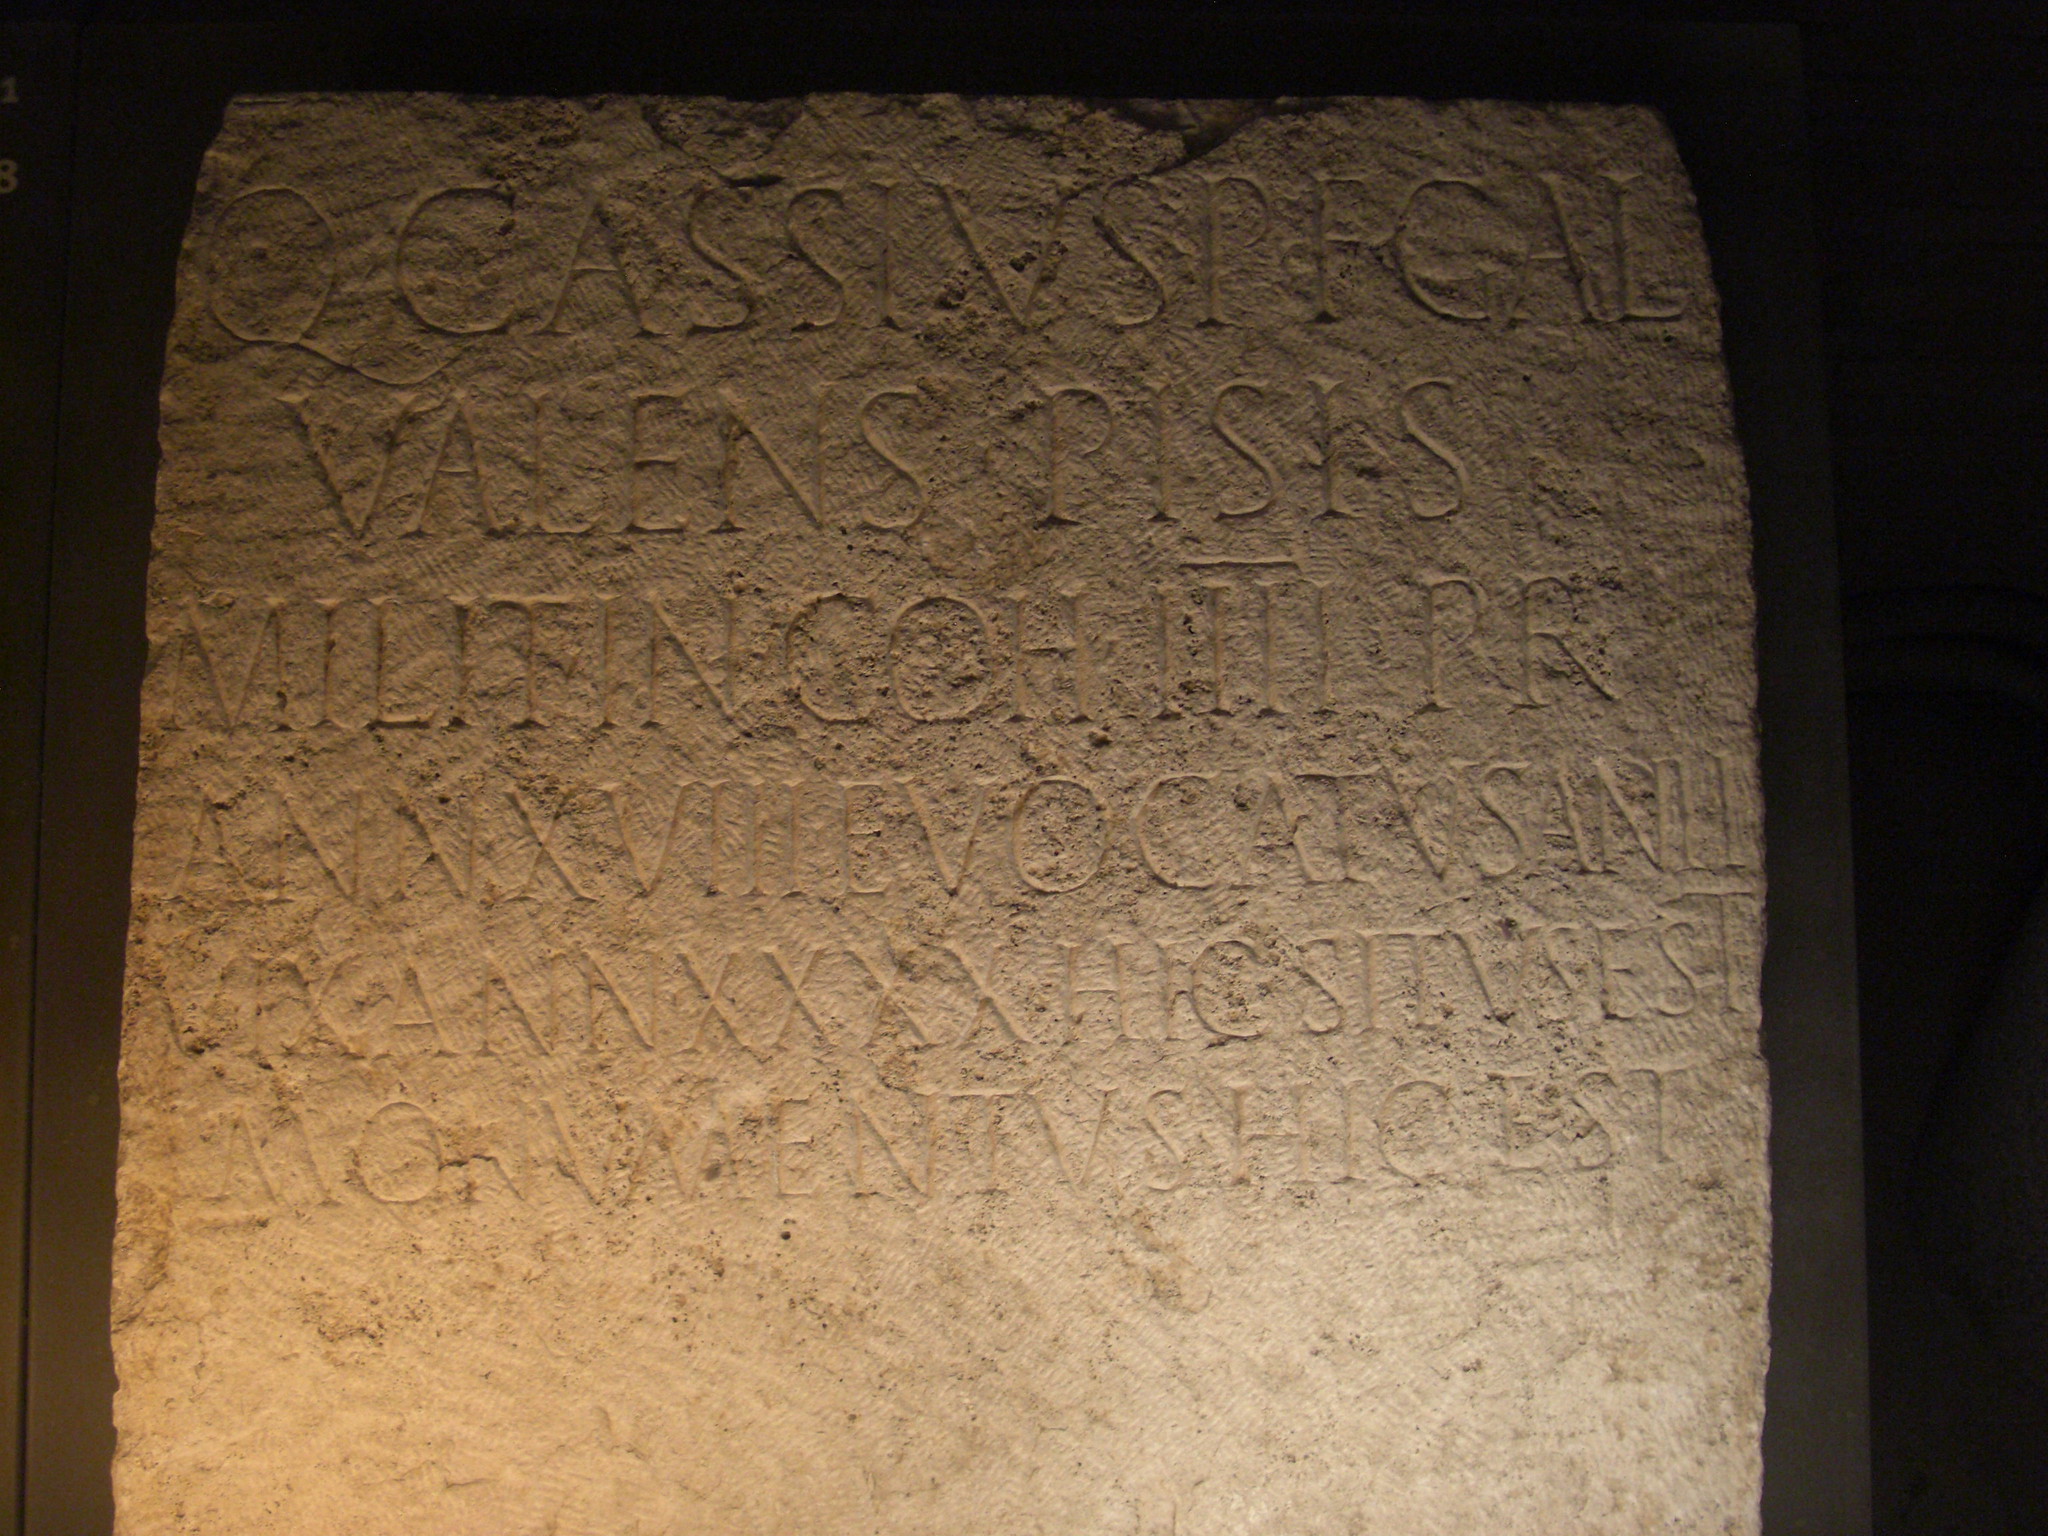 1
8
Q CASSIVS P F GAL
VALENS PISIS
MILIT IN COH IIII PR
ANN XVIII EVOCATVS AN III
VIX ANN XXXX HIC SITVS EST
MONVMENTVS HIC EST